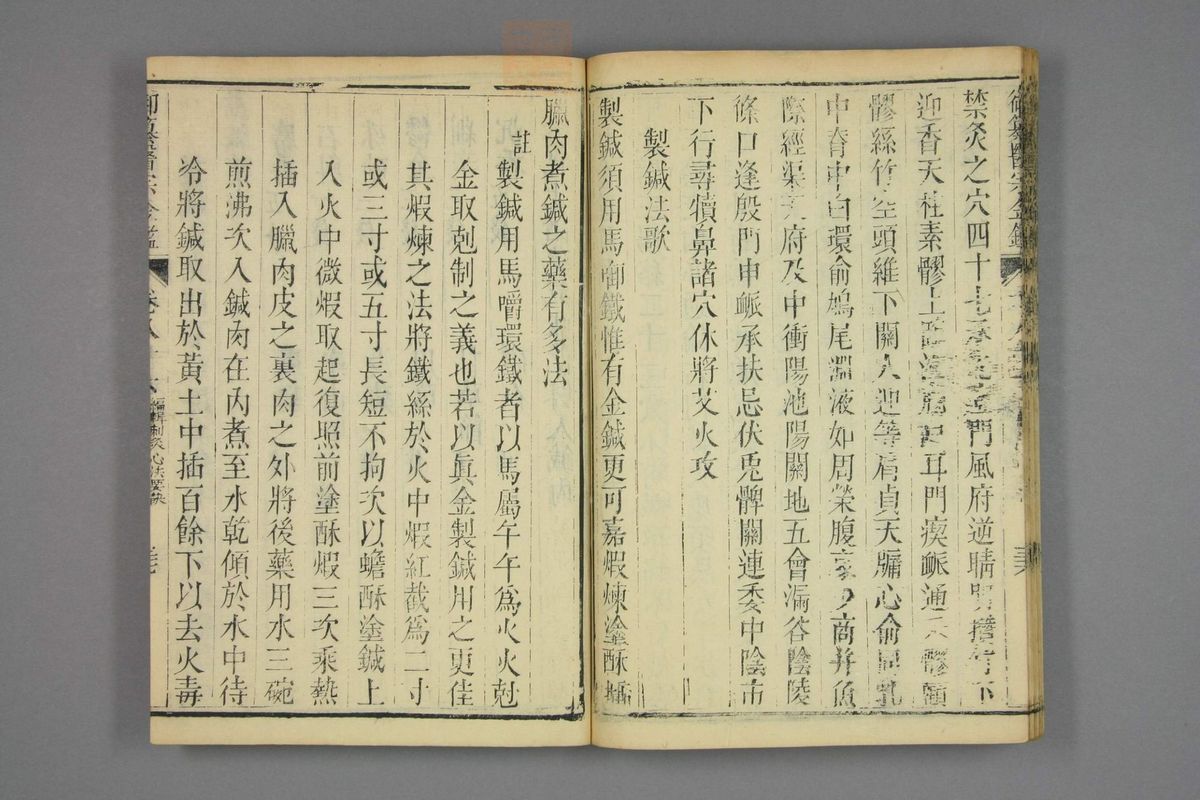 禁灸之穴四十七承光瘂門風府逆睛明攢竹下
迎香天柱素髎上臨泣腦戶耳門瘈脈通禾髎顴
髎絲竹空頭維下關人迎等肩貞天牖心俞同乳
中脊中白環俞鳩尾淵液如周榮腹哀少商并魚
際經渠天府及中衝陽池陽關地五會漏谷陰陵
條口逢殷門申脈承扶忌伏兎髀關連委中陰市
下行尋犢鼻諸穴休將艾火攻
製鍼法歌
製鍼須用馬啣鐵惟有金鍼更可嘉煆煉塗酥插
臘肉煮鍼之藥有多法
註製鍼用馬嚼環鐵者以馬屬午午爲火火尅
金取尅制之義也若以眞金製鍼用之更佳
其煆煉之法將鐵絲於火中煆紅截爲二寸
或三寸或五寸長短不拘次以蟾酥塗鍼上
入火中微煆取起復照前塗酥煆三次乘熱
插入臘肉皮之裏肉之外將後藥用水三碗
煎沸次入鍼肉在內煮至水乾傾於水中待
冷將鍼取出於黃土中插百餘下以去火毒